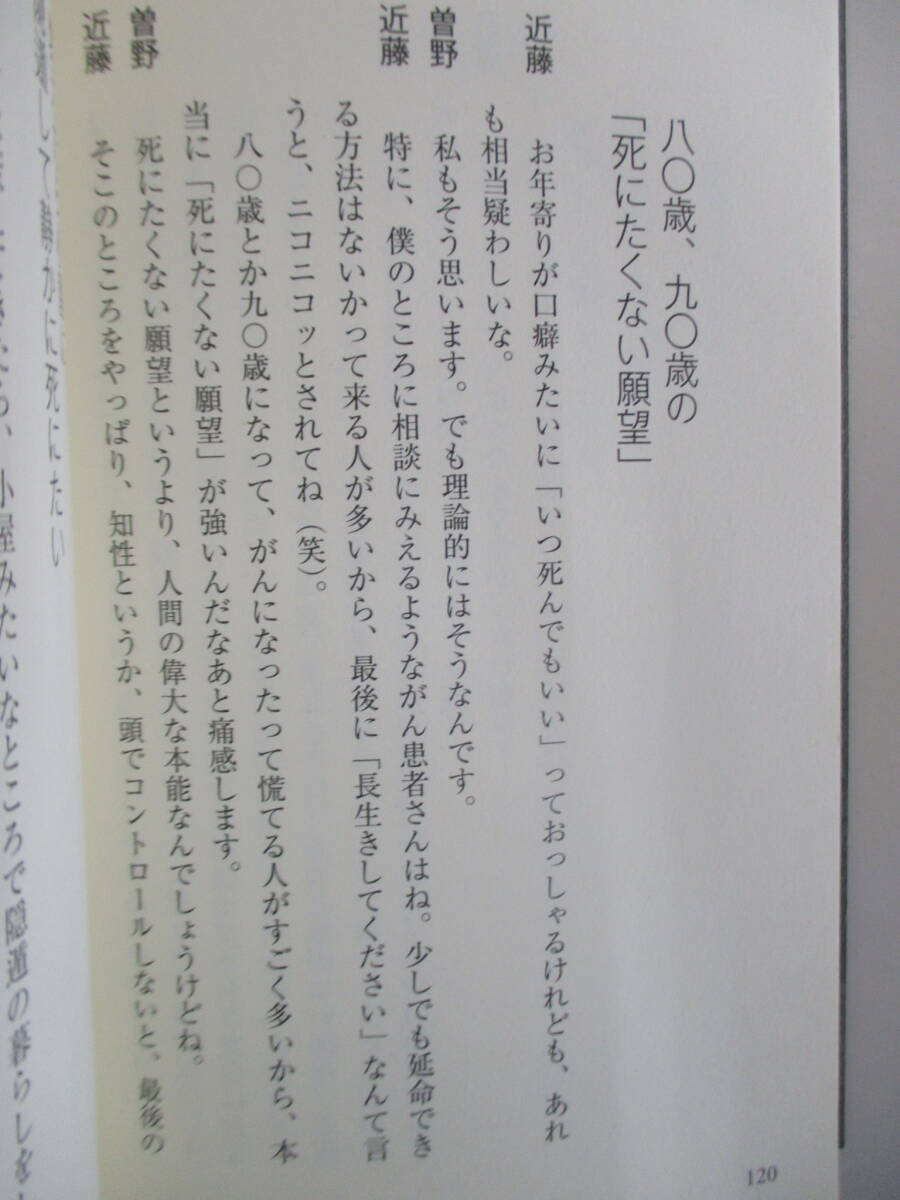 八〇歳、九〇歳の
「死にたくない願望」
近藤
お年寄りが口癖みたいに「いつ死んでもいい」っておっしゃるけれども、あれ
も相当疑わしいな。
曽野
私もそう思います。でも理論的にはそうなんです。
近藤
特に、僕のところに相談にみえるようながん患者さんはね。少しでも延命でき
る方法はないかって来る人が多いから、最後に「長生きしてください」なんて言
うと、ニコニコッとされてね（笑）。
八〇歳とか九〇歳になって、がんになったって慌てる人がすごく多いから、本
当に「死にたくない願望」が強いんだなあと痛感します。
曽野
死にたくない願望というより、人間の偉大な本能なんでしょうけどね。
近藤
そこのところをやっぱり、知性というか、頭でコントロールしないと、最後の
120
して静かに死にたい
小屋みたいなところで隠遁の暮らしを